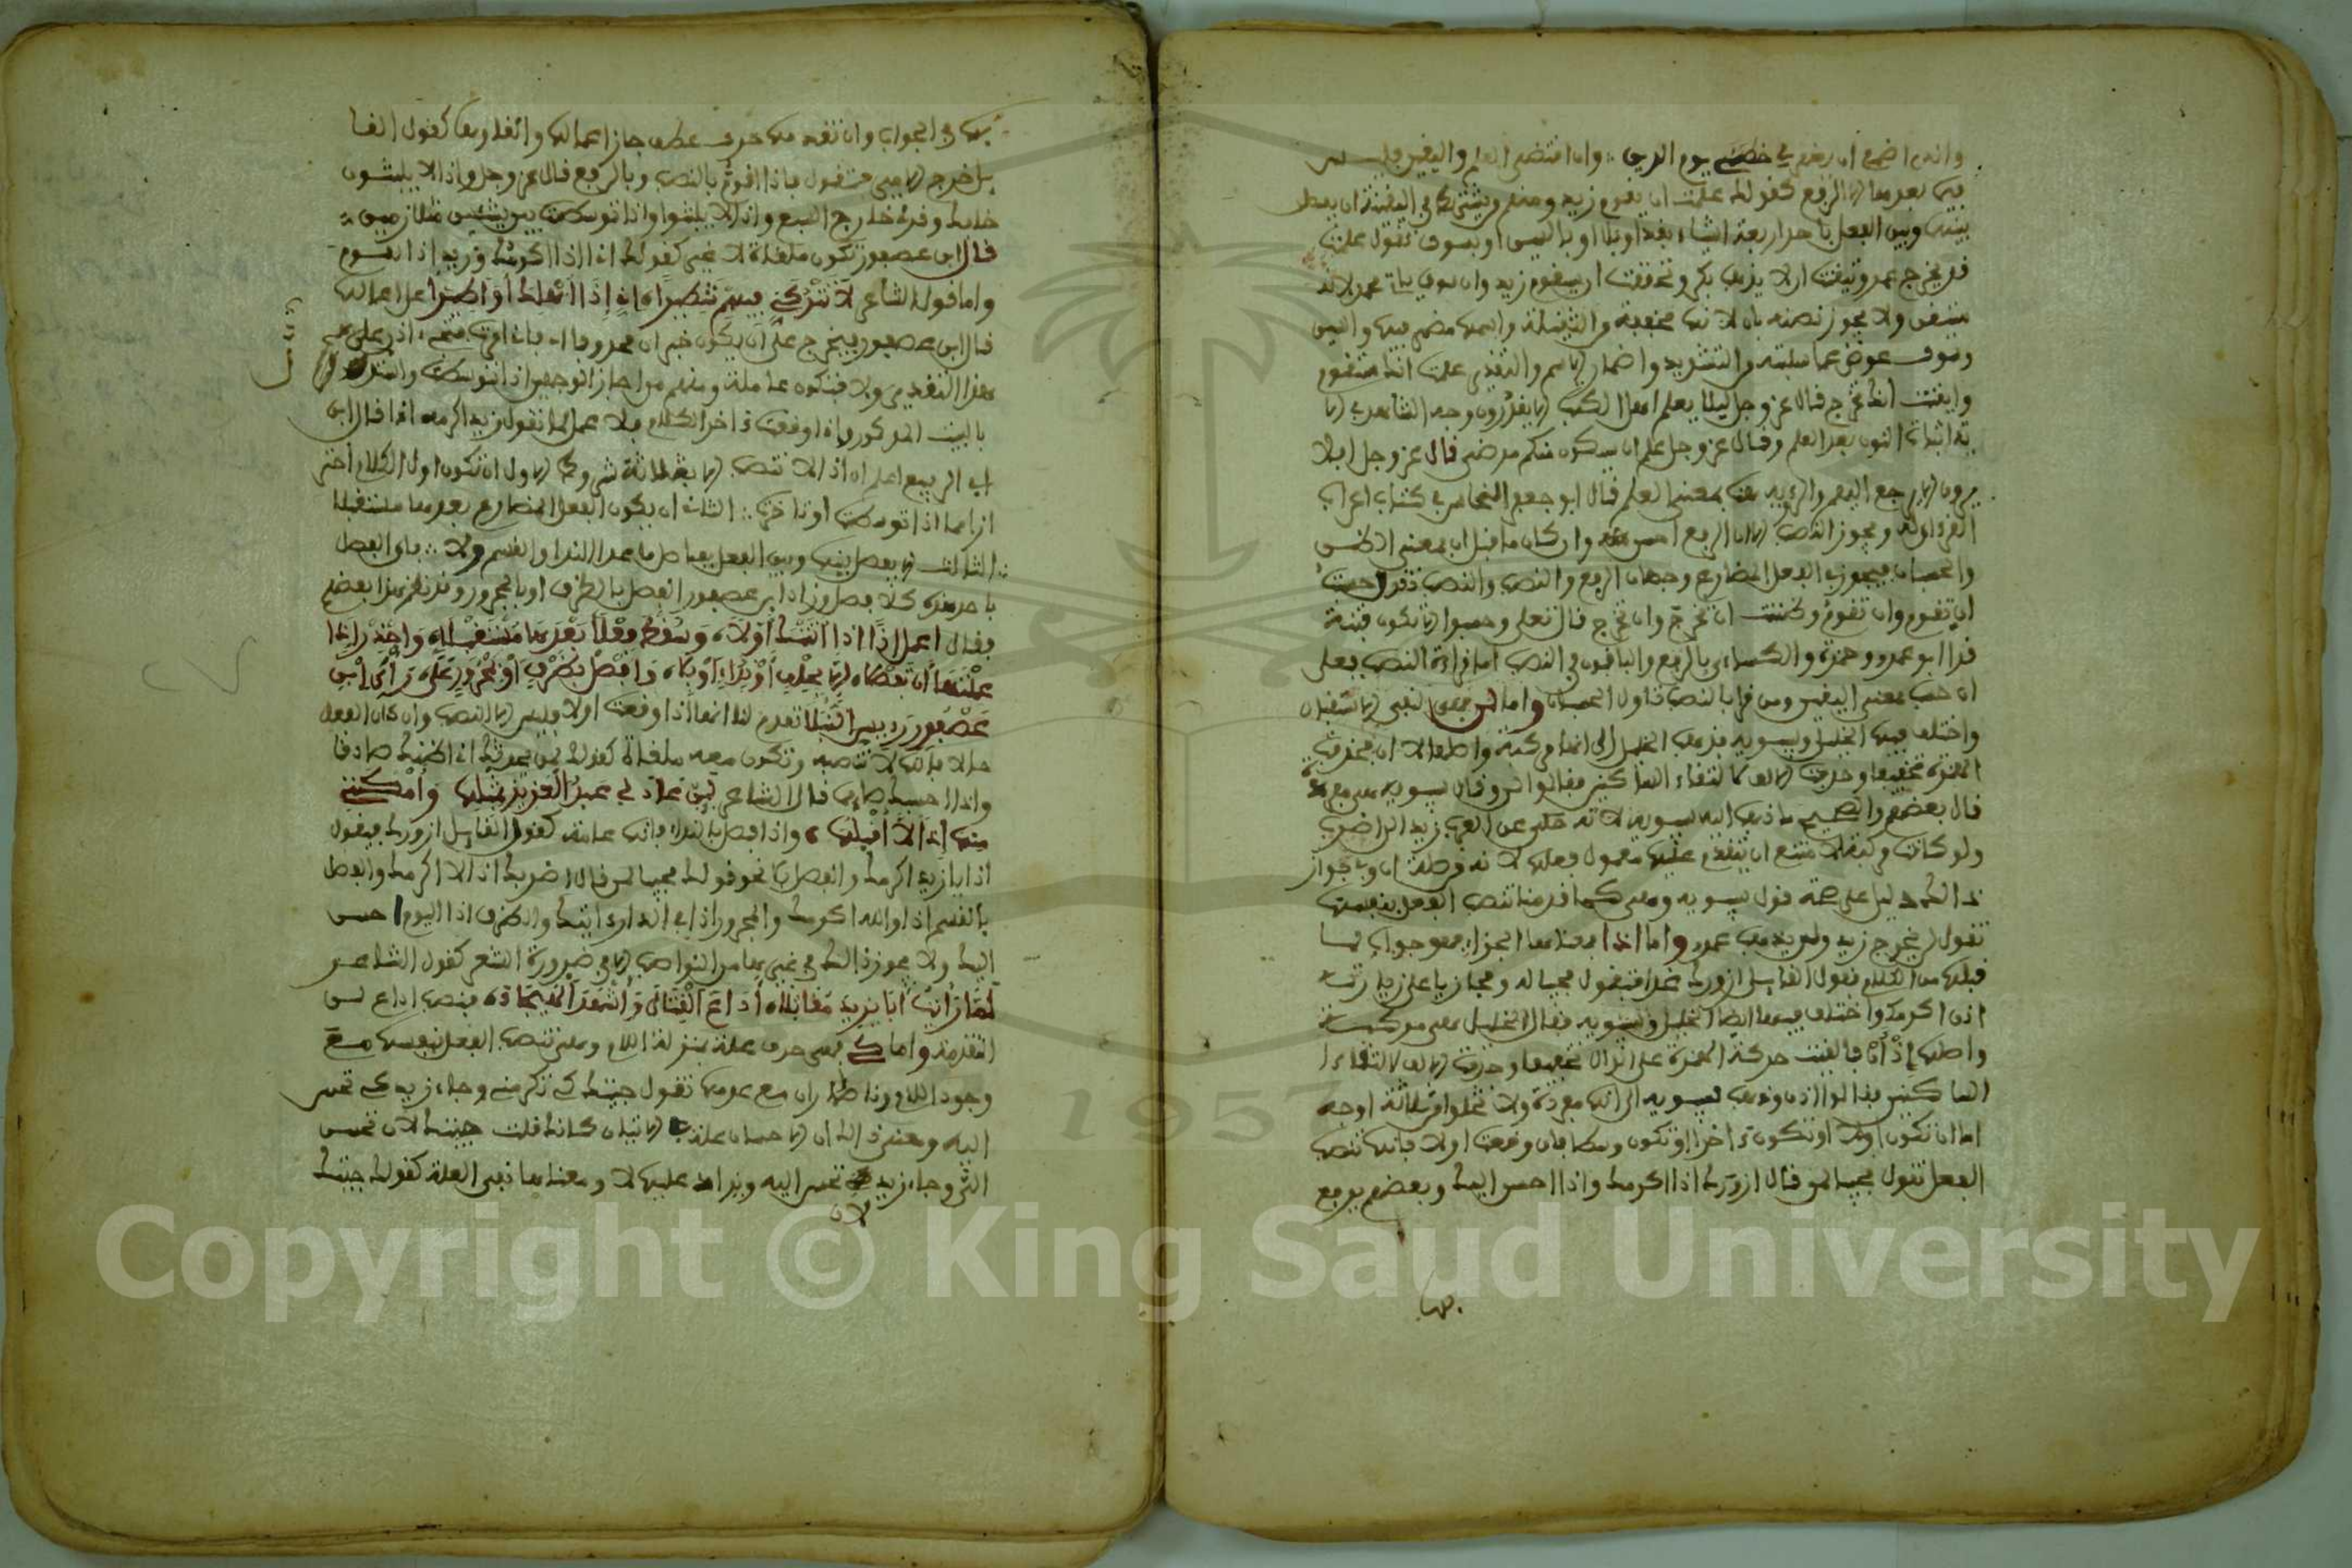 والذي اطمع ان يغفر لي خطيئتي يوم الدين وان اقتضى العلم واليقين فليس
فيما بعدها الا الرفع كقولك علمت ان يقوم زيد ومنهم
بينه وبين الفعل باحد اربعة اشياء بقد او بلا او بالسين او بسوف تقول علمت
قد يخرج عمرو وتيقنت ان لا يذهب بكر وتحققت ان سيقوم زيد وان سوف ياتي عمرو لانه
متيقن ولا يجوز نصبه بان لانها مخففة من الثقيلة واسمها مضمر فيها والسين
وسوف عوض مما من التشديد واضمار الاسم والتقدير علمت انك ستقوم
وايقنت انك تخرج قال عز وجل ليلا يعلم اهل الكتب الا يقدرون وجه الشاهد في الا
ية اثبات النون بعد العلم وقال عز وجل علم ان سيكون منكم مرضى قال عز وجل افلا
يرون الا يرجع اليهم والرؤية هنا بمعنى العلم قال ابو جعفر النحاس في كتاب اعراب
القرءان له ويجوز النصب الا ان الرفع احسن وان كان ما قبل ان بمعنى الظن
والحسبان فيجوز في الفعل المضارع وجهان الرفع والنصب تقول حسبت
ان تقوم وان تقوم وظننت ان تخرج وان تخرج قال تعلى وحسبوا الا تكون فتنة
قرا ابو عمرو وحمزة والكساءي بالرفع والباقون في النصب اما قراءة النصب فعلى
ان حسب بمعنى اليقين ومن قرا بالنصب تاول الحسبان واما لن فهي لنفي الاستقبال
واختلف فيها الخليل وسيبويه فذهب الخليل الى انها مركبة واصلها لا ان فحذفت
الهمزة تخفيفا وحذفت الالف لالتقاء الساكنين فقالوا لن وقال سيبويه هي مفردة
قال بعضهم والصحيح ما ذهب اليه سيبويه لانه حكى عن العرب زيدا لن اضرب
ولو كانت مركبة لامتنع ان يتقدم عليها معمول فعلها لانه من صلة ان وفي جواز
ذالك دليل على صحة قول سيبويه وهي كما قدمنا تنصب الفعل بنفسها
تقول لن يخرج زيد ولن يذهب عمرو واما اذا فمعناها الجزاء وهو جواب لما
قبلها من الكلام يقول القايل ازورك غدا فتقول مجيبا له ومجازيا على زيارته
اذن اكرمك واختلف فيها ايضا الخليل وسيبويه فقال الخليل هي مركبة
واصلها اذ ان فالقيت حركة الهمزة على الذال تخفيفا وحذفت الالف لالتقاء ا
لساكنين فقالوا اذن وذهب سيبويه الى انها مفردة ولا تخلوا من ثلاثة اوجه
اما ان تكون اولا او تكون ءاخرا او تكون وسطا فان وقعت اولا فانها تنصب
الفعل تقول مجيبا لمن قال ازورك اذا اكرمك واذا احسن اليك وبعضهم يرفع
بها
بها في الجواب وان تقدمها حرف عطف جاز اعمالها والغاوها كقول القا
يل خرج الامير فتقول فاذا اقوم بالنصب وبالرفع قال عز وجل واذا لا يلبثون
خلافك وقرئ خارج السبع واذا لا يلبثوا واذا توسطت بين شيئين متلازمين
قال ابن عصفور تكون ملغاة لا غير كقولك انا اذا اكرمك وزيد اذا يقوم
واما قول الشاعر لا تتركني فيهم شطيرا اني اذا اهلك او اطيرا على اعمالها
قال ابن عصفور فيخرج على ان يكون خبر ان محذوفا
هذا التقدير ولا فتكون عاملة ومنهم من اجاز الوجهين اذا توسطت وانشد
بالبيت المذكور واذا وقعت ءاخر الكلام فلا عمل لها تقول زيد اكرمه اذا قال ابن
ابي الربيع اعلم ان اذا لا تنصب الا بثلاثة شروط الاول ان تكون اول الكلام احتر
ازا مما اذا توسطت او تاخرت الثاني ان يكون الفعل المضارع بعدها مستقبلا
الثالث الا يفصل بينها وبين الفعل بفاصل ما عدا النداء والقسم ولا فان الفصل
باحد هذه كلا فصل وزاد ابن عصفور الفصل بالظرف او بالمجرور وقد نظم هذا بعضهم
فقال اعمل اذا اذا اتتك اولا وسقت فعلا بعدها مستقبلا واحذر اذا
عملتها ان تفصلا الا بحلف او نداء او بلا وافصل بظرف او بمجرور على رأي ابن
عصفور رءيس النبلا تقدم لنا انها اذا وقعت اولا فليس الا النصب وان كان الفعل
حالا فانها لا تنصبه وتكون معه ملغاة كقولك لمن يحدثك اذا اظنك صادقا
واذا احسبك صادقا قال الشاعر لئن عاد لي عبد العزيز بمثلها وامكنني
منها اذا لا اقيلها واذا فصل بالنداء فانها عاملة كقول القايل ازورك فيقول
اذا يا زيد اكرمك والفصل بلا نحو قولك مجيبا لمن قال اضربك اذا لا اكرمك والفصل
بالقسم اذا والله اكرمك والمجرور اذا في الدار ءاتيك والظرف اذا اليوم احسن
اليك ولا يجوز ذالك في غيرها من النواصب الا في ضرورة الشعر كقول الشاعر
لما رايت ابا يزيد مقاتلا ادع القتال واشهد الهيجاء فنصب ادع بلن
المتقدمة واما كي فهي حرف علة بمنزلة اللام وهي تنصب الفعل بنفسها مع
وجود اللام وباضمار ان مع عدمها تقول جئتك كي تكرمني وجاء زيد كي تحسن
اليه ومعنى ذالك ان الاحسان علة الاتيان كانك قلت جئتك لان تحسن
الي وجاء زيد تحسن اليه ويزاد عليها لا ومعناها نفي العلة كقولك جئتك
لان
Copyright © King Saud University
1957